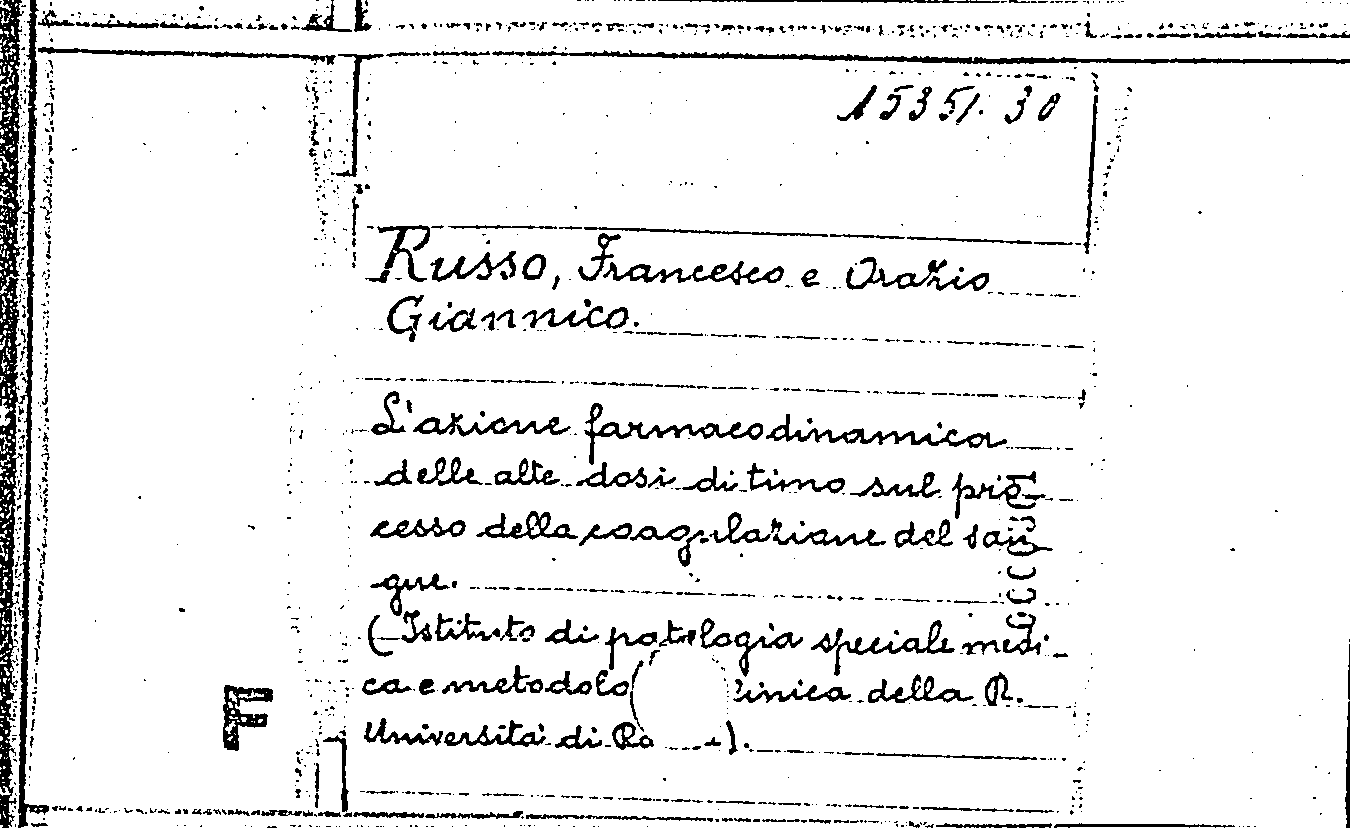 15351.30
Russo, Francesco e Orazio
Giannico.
L'azione farmacodinamica
delle alte dosi di timo sul pro-
cesso della coagulazione del san-
gue.
(Istituto di patologia speciale medi-
ca e metodolo inica della R.
Università di Ro ).
F